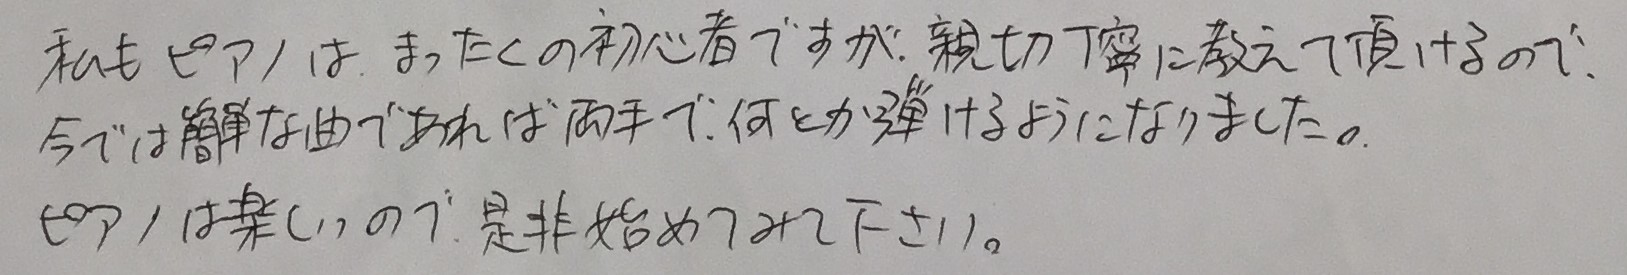 私もピアノは、まったくの初心者ですが、親切丁寧に教えて頂けるので、
今では簡単な曲であれば両手で、何とか弾けるようになりました。
ピアノは楽しいので、是非始めてみて下さい。